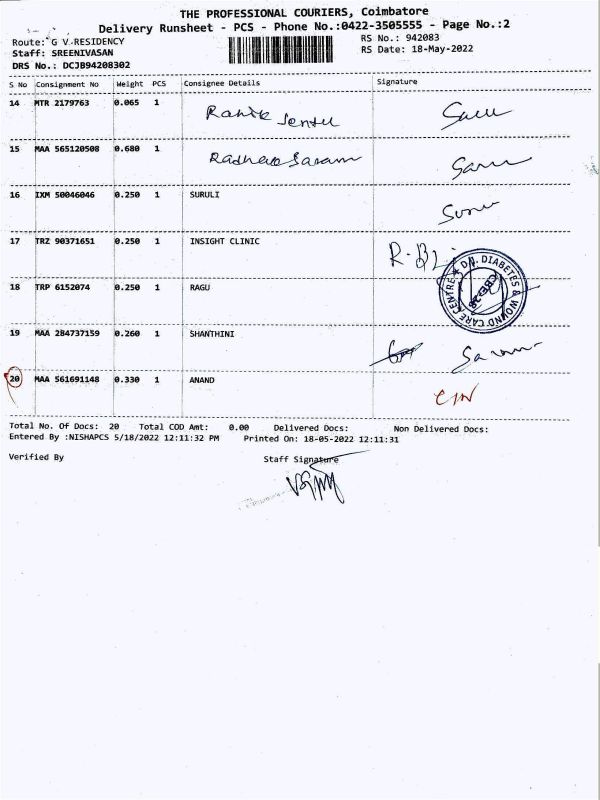 THE PROFESSIONAL COURIERS, Coimbatore
Delivery Runsheet - PCS - Phone No.:0422-3505555 - Page No.:2
Route: G V.RESIDENCY
RS No.: 942083
Staff: SREENIVASAN
RS Date: 18-May-2022
DRS No.: DCJB94208302
S No Consignment No Weight PCS Consignee Details Signature
14 MTR 2179763 0.065 1
15 MAA 565120508 0.680 1
16 IXM 50046046 0.250 1 SURULI
17 TRZ 90371651 0.250 1 INSIGHT CLINIC
18 TRP 6152074 0.250 1 RAGU
DIABETES & WOUND CARE CENTRE
19 MAA 284737159 0.260 1 SHANTHINI
20 MAA 561691148 0.330 1 ANAND
Total No. Of Docs: 20 Total COD Amt: 0.00 Delivered Docs: Non Delivered Docs:
Entered By :NISHAPCS 5/18/2022 12:11:32 PM Printed On: 18-05-2022 12:11:31
Verified By Staff Signature